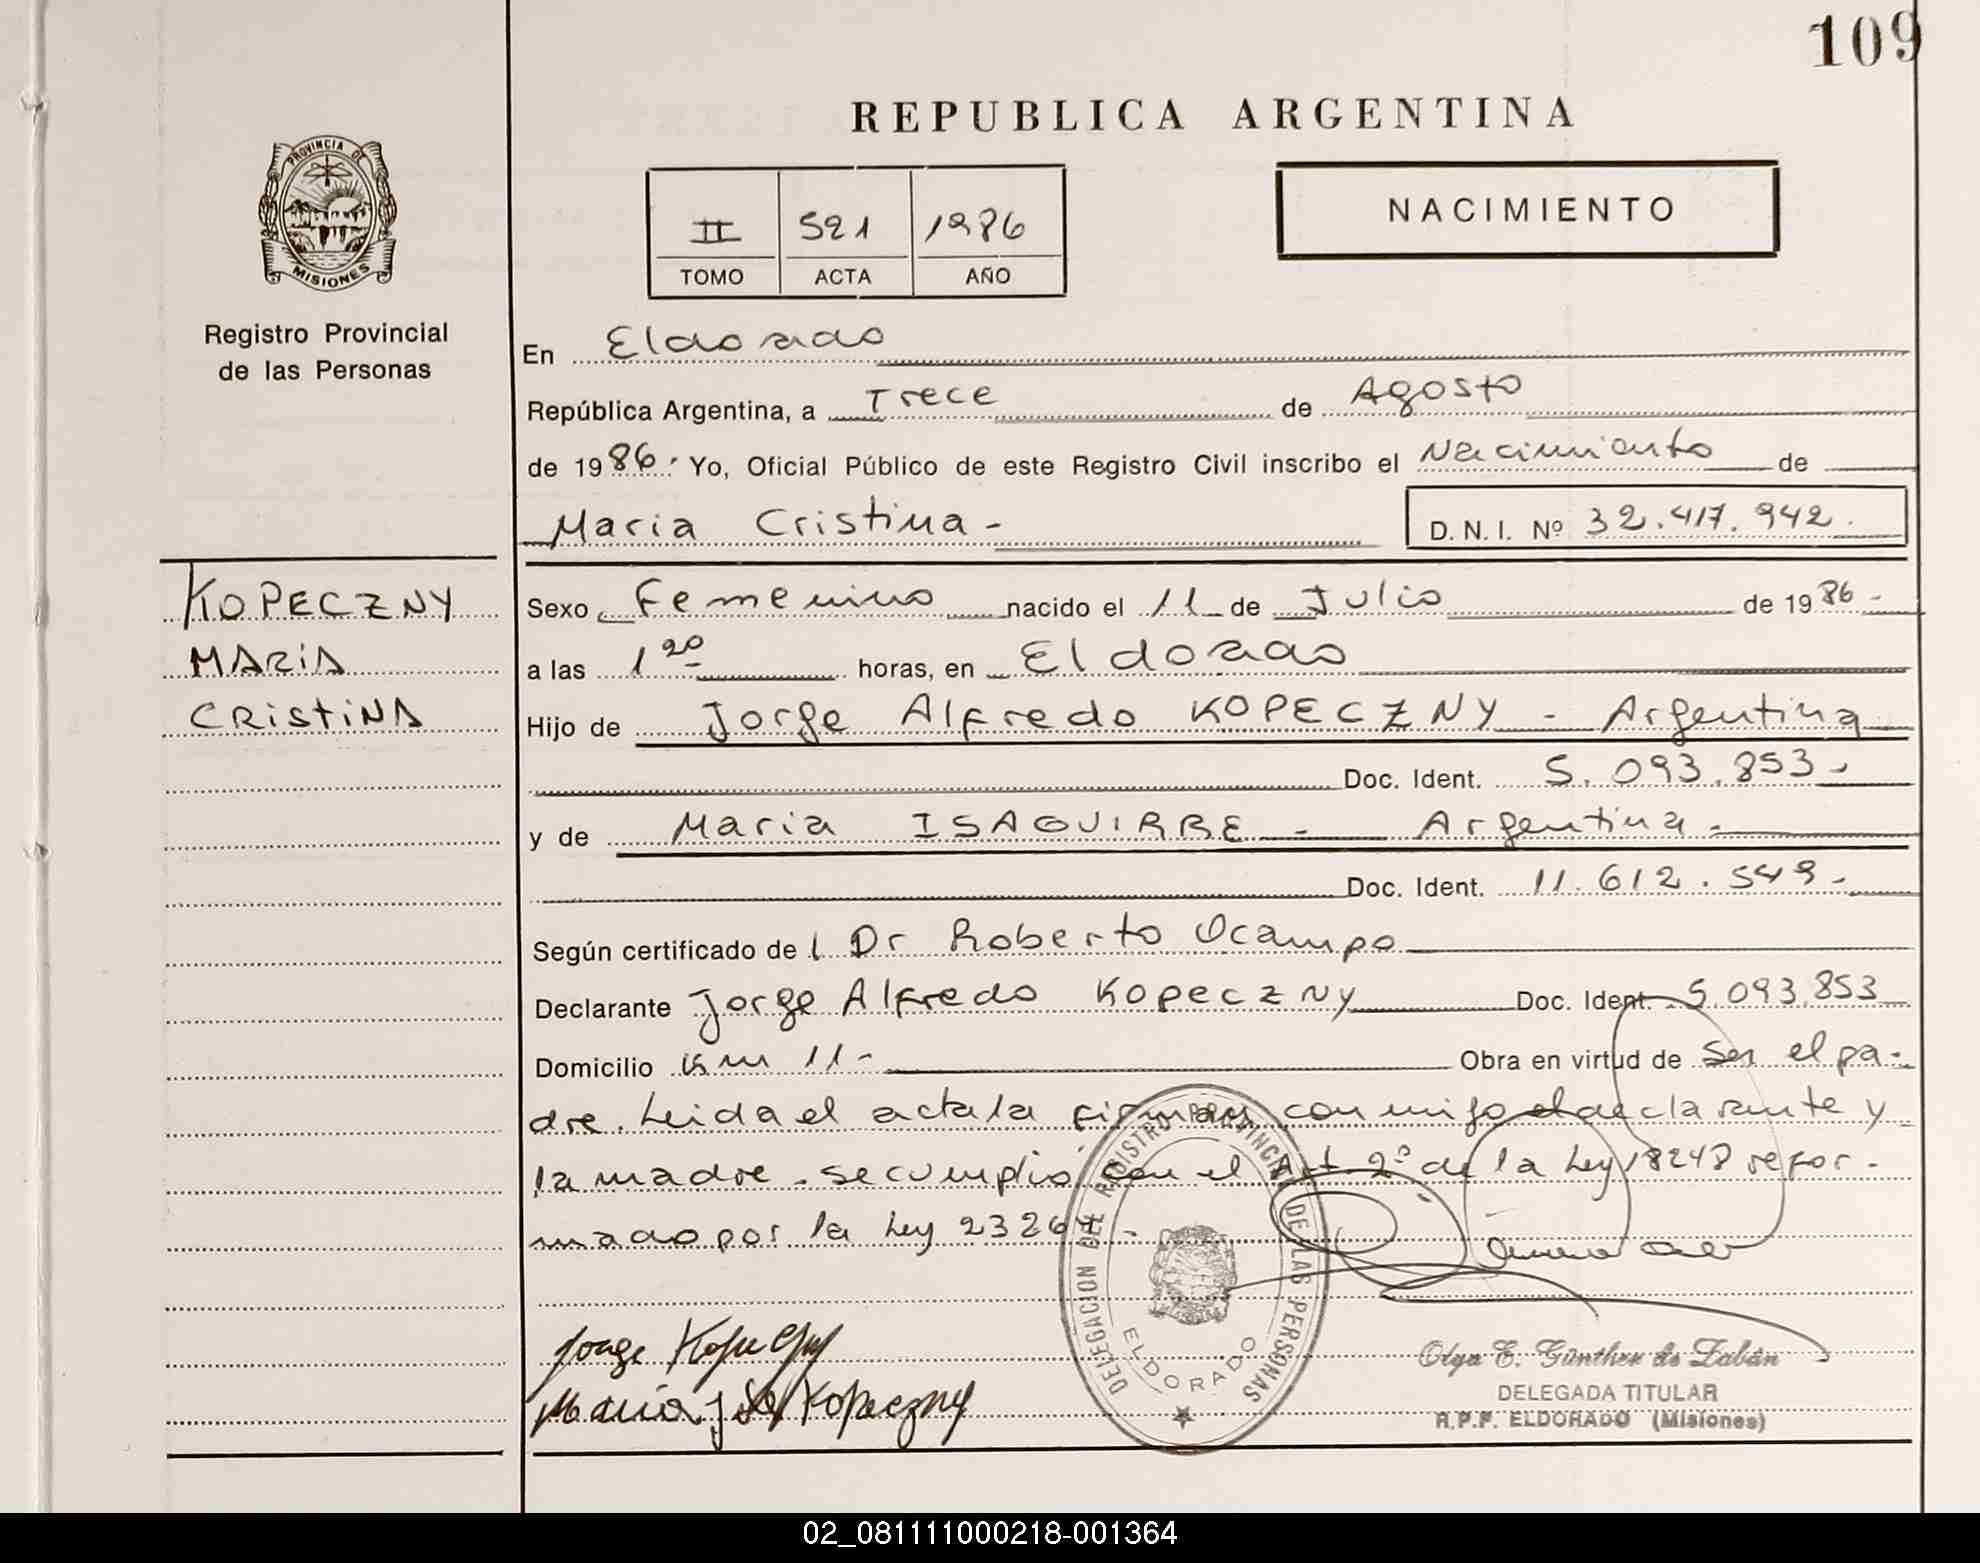 109
REPUBLICA ARGENTINA
PROVINCIA DE
MISIONES
Registro Provincial
de las Personas
II 521 1986
TOMO ACTA AÑO
NACIMIENTO
En Eldorado
República Argentina, a Trece de Agosto
de 1986. Yo, Oficial Público de este Registro Civil inscribo el Nacimiento de
Maria Cristina -
D. N. I. Nº 32.417.942.
KOPECZNY
MARIA
CRISTINA
Sexo Femenino nacido el 11 de Julio de 1986-
a las 1 20 horas, en Eldorado
Hijo de Jorge Alfredo KOPECZNY - Argentina
Doc. Ident. 5.093.853-
y de Maria ISAGUIRRE - Argentina-
Doc. Ident. 11.612.549-
Según certificado de l Dr Roberto Ocampo
Declarante Jorge Alfredo Kopeczny Doc. Ident. 5.093.853
Domicilio Km 11- Obra en virtud de ser el pa-
dre. Leida el acta la firman conmigo el declarante y
la madre. se cumplio con el Art. 2º de la Ley 18248 refor-
mado por la Ley 23264-
Jorge Kopeczny
Maria J Kopeczny
DELEGACION DEL REGISTRO PROVINCIAL DE LAS PERSONAS
ELDORADO
Olga E. Günther de Zabán
DELEGADA TITULAR
R.P.P. ELDORADO (Misiones)
02_081111000218-001364